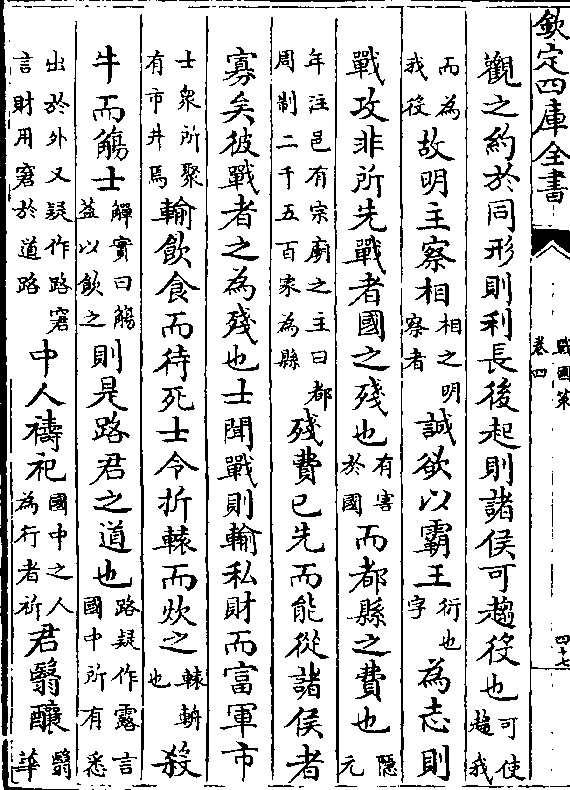 欽定四庫全書
戰國策
卷四
四十七
觀之約於同形則利長後起則諸侯可趨役也可使趨我
而為我役故明主察相相之明察者誠欲以霸王衍也字為志則
戰攻非所先戰者國之殘也有害於國而都縣之費也隱元
年注邑有宗廟之主曰都周制二千五百家為縣殘費已先而能從諸侯者
寡矣彼戰者之為殘也士聞戰則輸私財而富軍市
士衆所聚有市井焉輸飲食而待死士令折轅而炊之轅輈也殺
牛而觴士觶實曰觴葢以飲之則是路君之道也路疑作露言國中所有悉
出於外又疑作路窘言財用窘於道路中人禱祀國中之人為行者祈君翳釀翳華